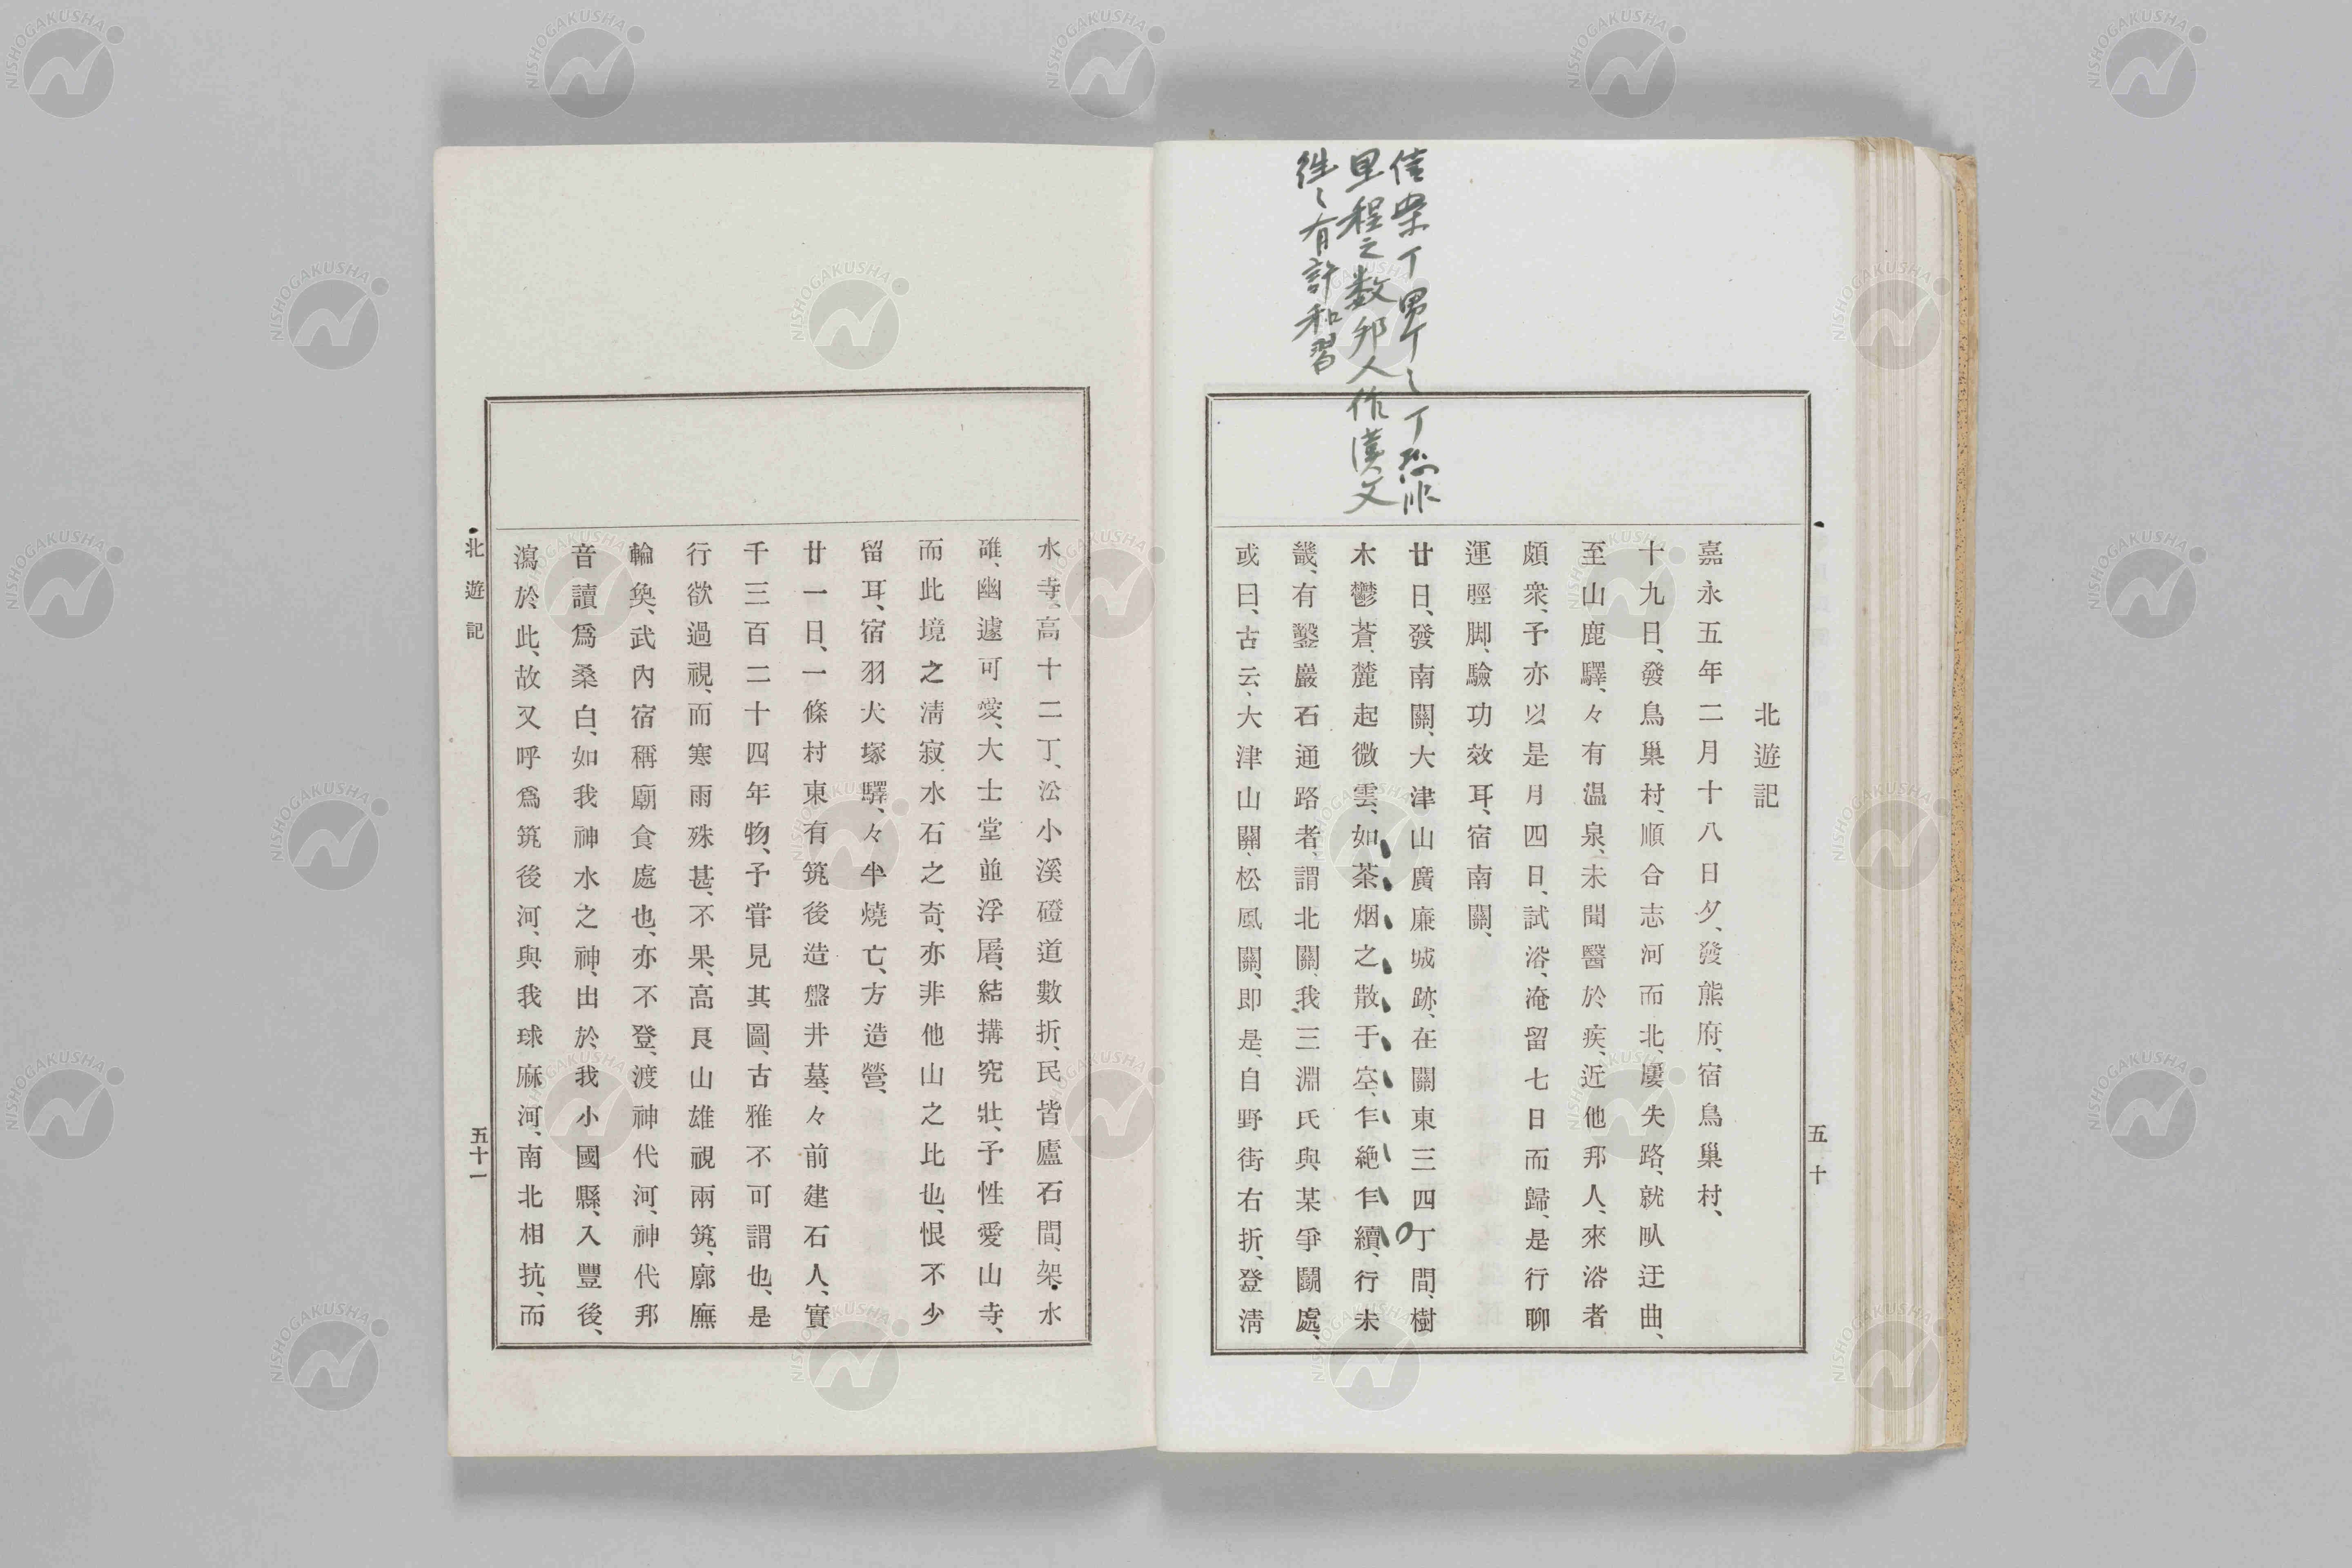 北遊記
嘉永五年二月十八日夕、發熊府、宿鳥巢村、
十九日、發鳥巢村、順合志河而北、屢失路、就畎迂曲、
至山鹿驛、々有温泉、未聞醫於疾、近他邦人、來浴者
頗衆、予亦以是月四日、試浴、淹留七日而歸、是行聊
運脛脚、驗功效耳、宿南關、
廿日、發南關、大津山廣廉城跡、在關東三四丁間、樹
木鬱蒼、麓起微雲、如茶烟之散于空、乍絶乍續、行未
畿、有鑿巖石通路者、謂北關、我三淵氏與某爭鬪處、
或曰、古云、大津山關、松風關、即是、自野街右折、登淸
五十
佳案丁男丁之丁恐非
里程之数邦人作漢文
徃〻有許和習
水寺、高十二丁、沿小溪磴道數折、民皆廬石間、架水
碓、幽邃可愛、大士堂並浮屠、結搆究壯、予性愛山寺、
而此境之淸寂、水石之奇、亦非他山之比也、恨不少
留耳、宿羽犬塚驛、々半燒亡、方造營、
廿一日、一條村東有筑後造盤井墓、々前建石人、實
千三百二十四年物、予嘗見其圖、古雅不可謂也、是
行欲過視、而寒雨殊甚、不果、高良山雄視兩筑、廓廡
輪奐、武內宿稱廟食處也、亦不登、渡神代河、神代邦
音讀爲桑白、如我神水之神、出於我小國縣、入豐後、
瀉於此、故又呼爲筑後河、與我球麻河、南北相抗、而
北遊記
五十一